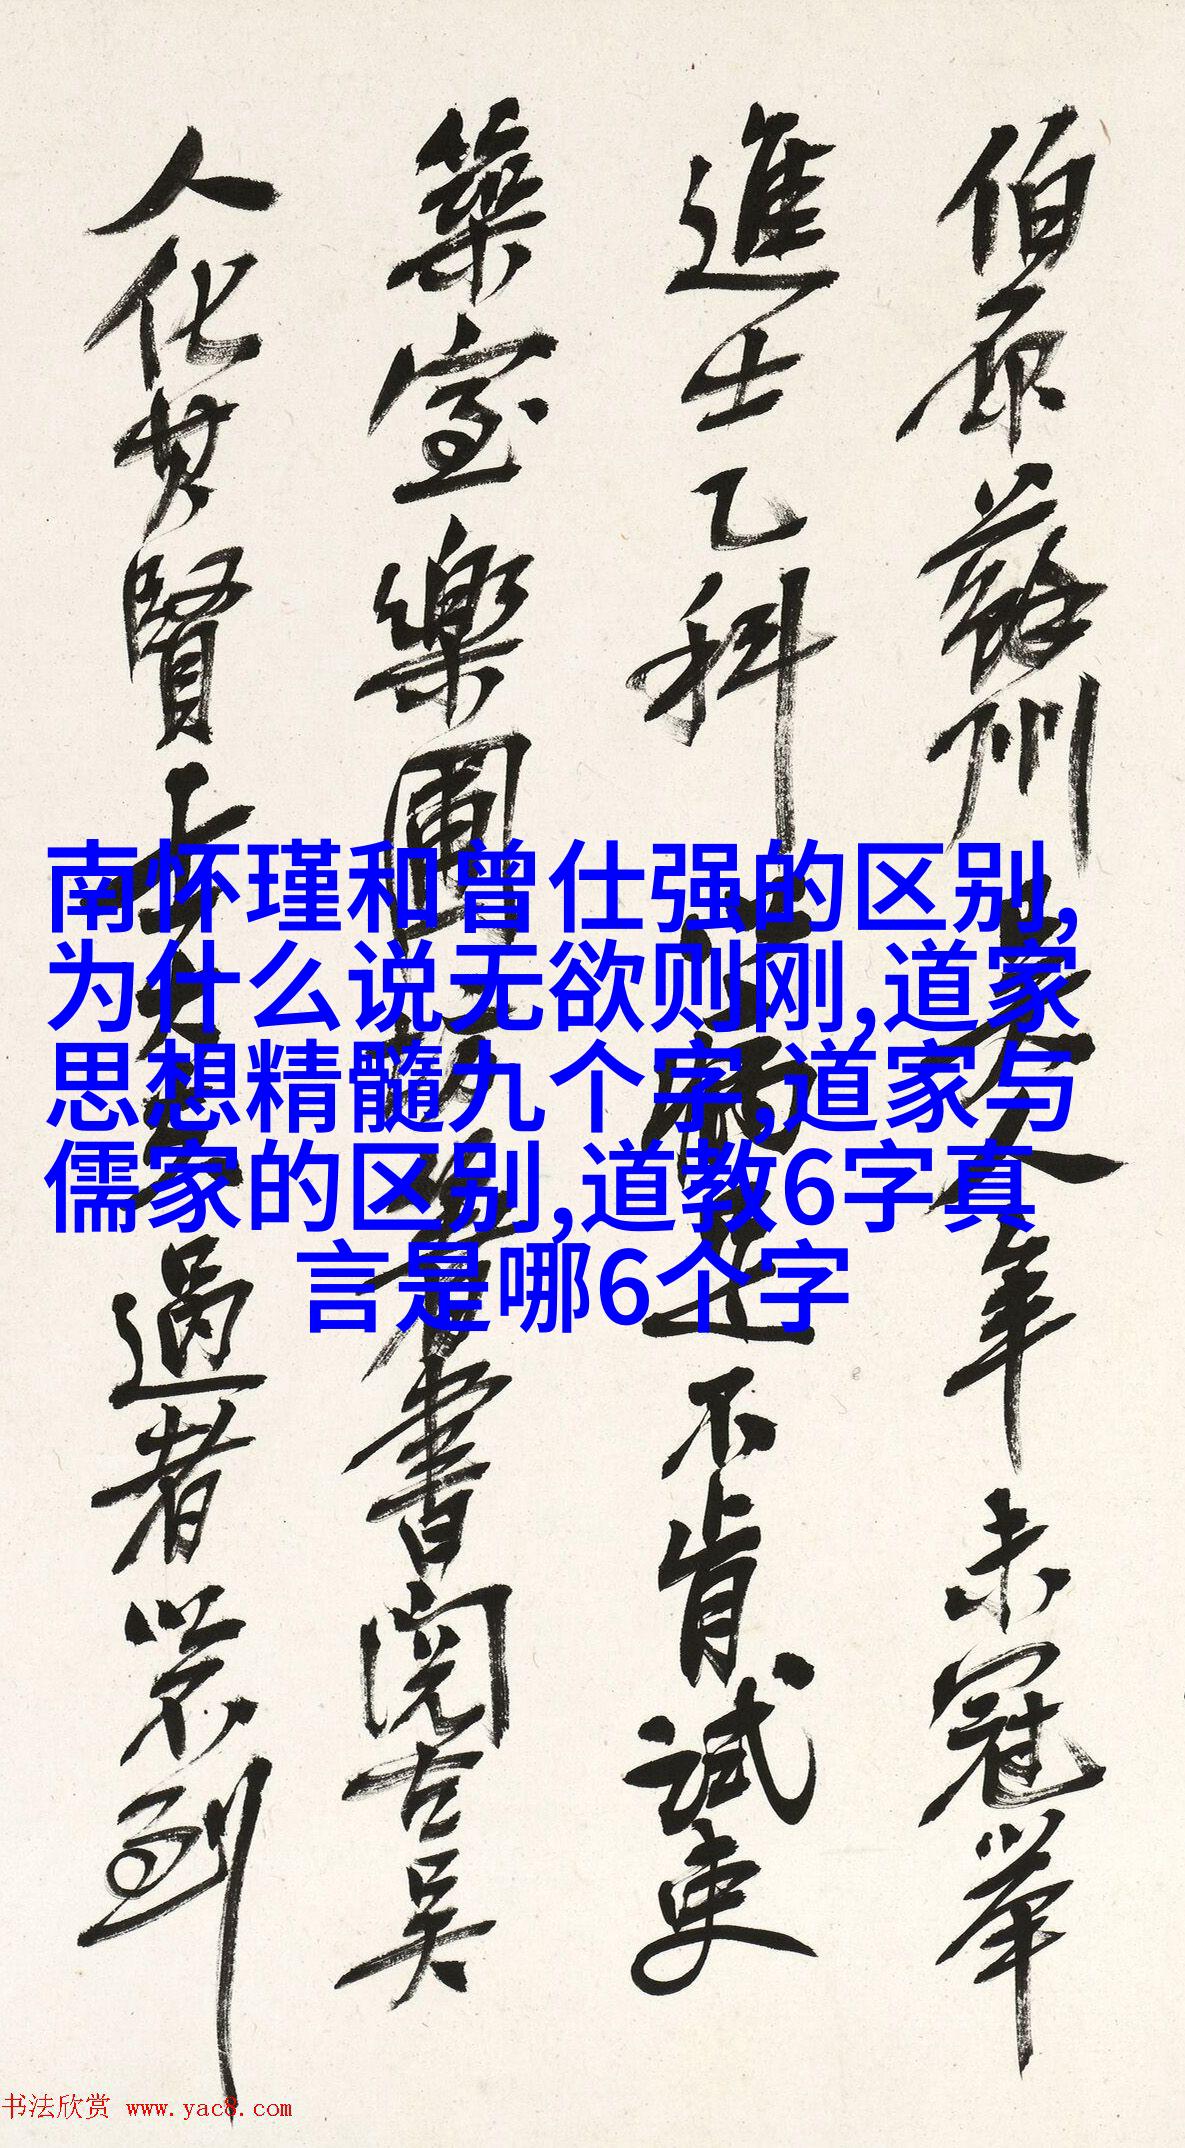 伯原蘇州吳人年未冠舉
進士乙科病足不肯試吏
築室樂圃著書閱古吳
人化其賢過者以不到
南怀瑾和曾仕强的区别,
为什么说无欲则刚,道家
思想精髓九个字,道家与
儒家的区别,道教6字真
言是哪6个字
书法欣赏 www.yac8.com